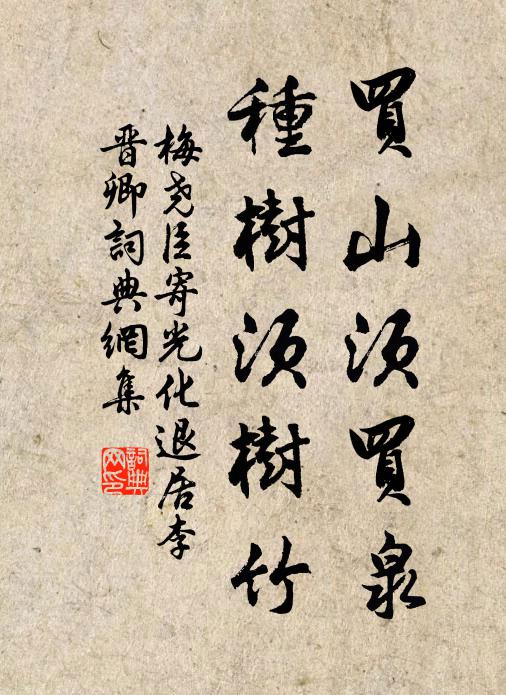 買山須買泉
種樹須樹竹
梅堯臣寄光化退居李
晋卿詞典網集
詞典網印